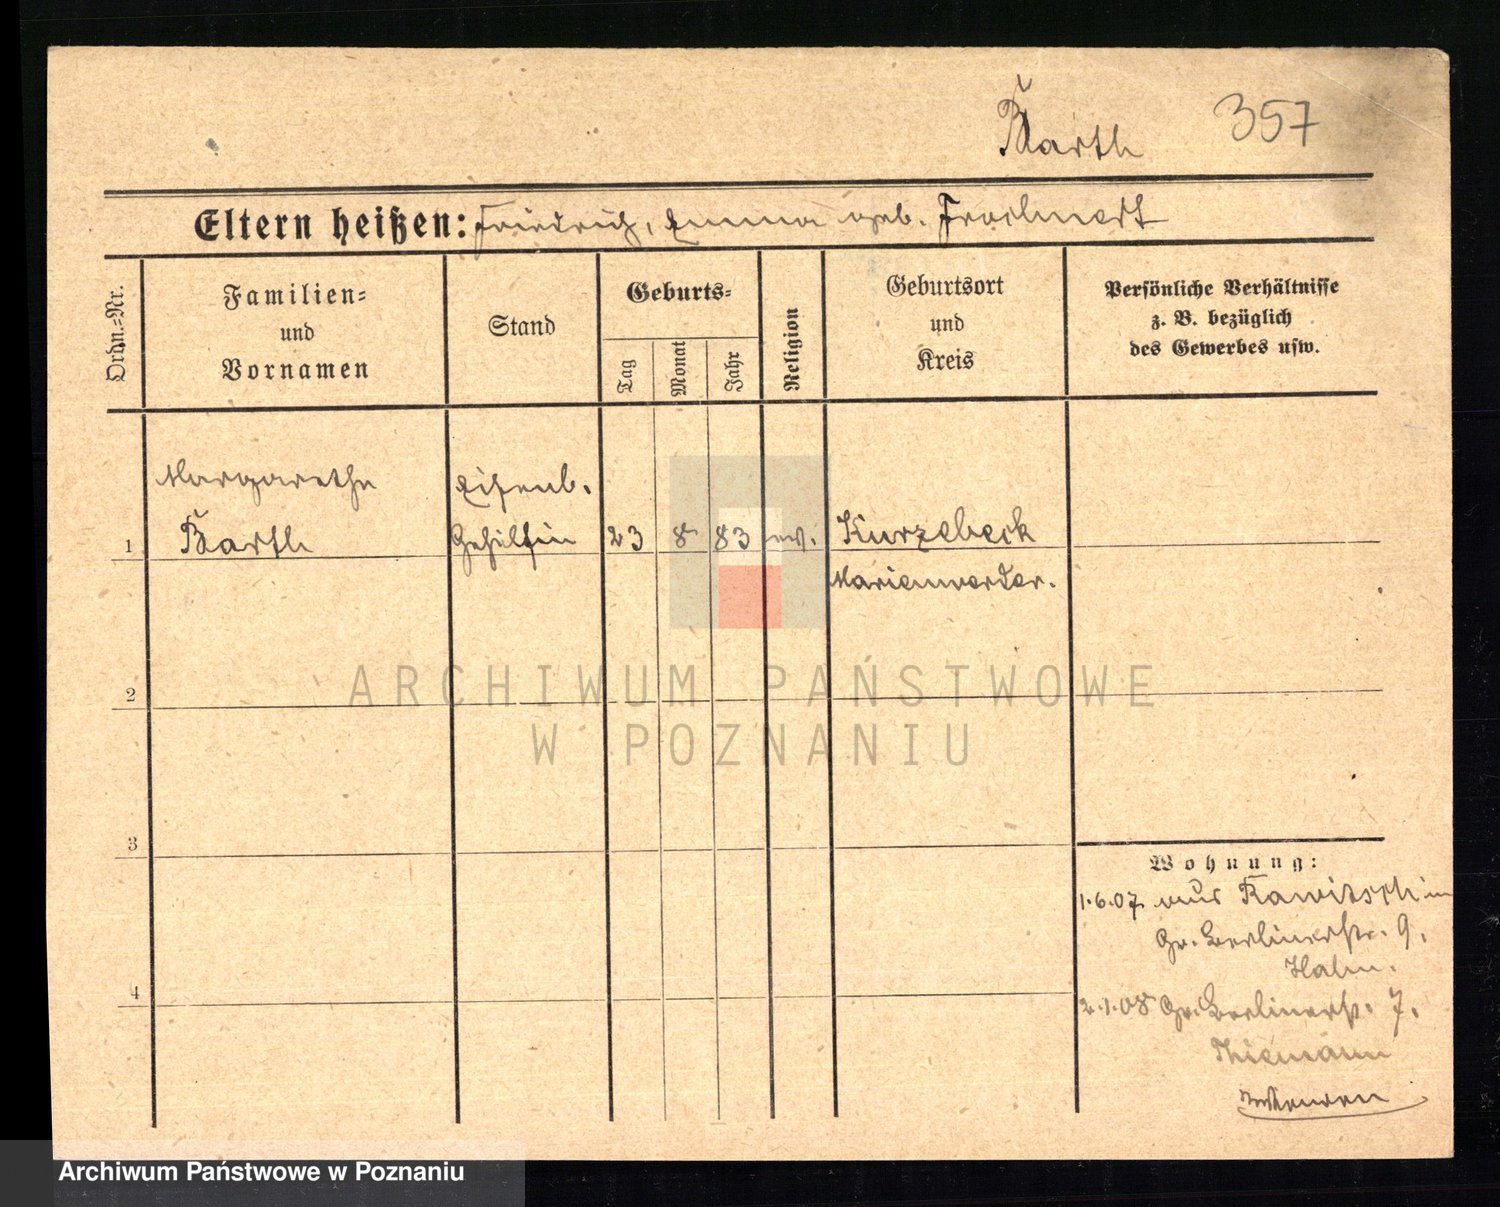 Barth 357
Eltern heißen: Friedrich, Emma geb.
Ordn.=Nr.
Familien=
und
Vornamen
Stand
Geburts=
Tag
Monat
Jahr
Religion
Geburtsort
und
Kreis
Persönliche Verhältnisse
z. B. bezüglich
des Gewerbes usw.
Margarethe Eisenb.
1 Barth Gehilfin 23 8 83 ev. Kurzebeck
Marienwerder.
2
3
4
Wohnung:
1.6.07 aus Rawitsch in
Gr. Berlinerstr. 9.
Hahn.
2.1.08 Gr. Berlinerst. 7.
Thiemann
ARCHIWUM PAŃSTWOWE
W POZNANIU
Archiwum Państwowe w Poznaniu